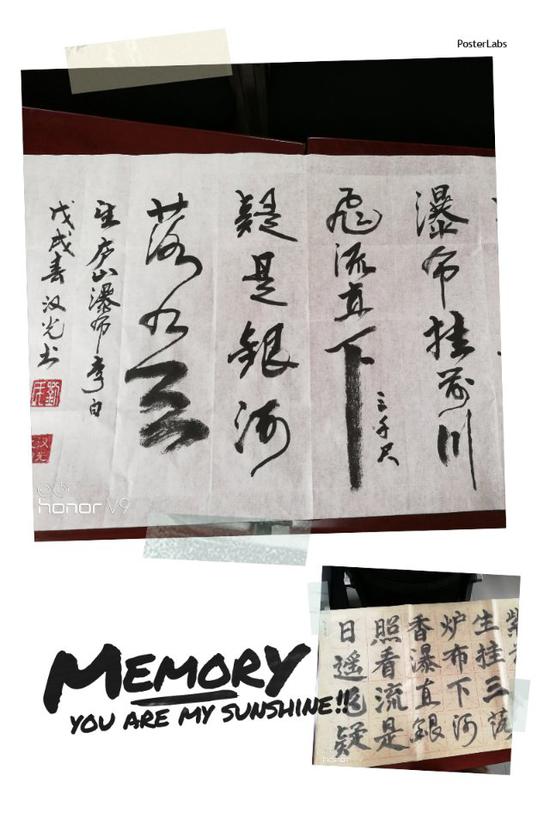 PosterLabs
瀑布挂前川
飞流直下
三千尺
疑是銀河
落九天
望庐山瀑布李白
戊戌春汉光书
汉光
honor V9
MEMORY
YOU ARE MY SUNSHINE!!
日照香炉生紫
遥看瀑布挂
飞流直下三
疑是銀河落
honor